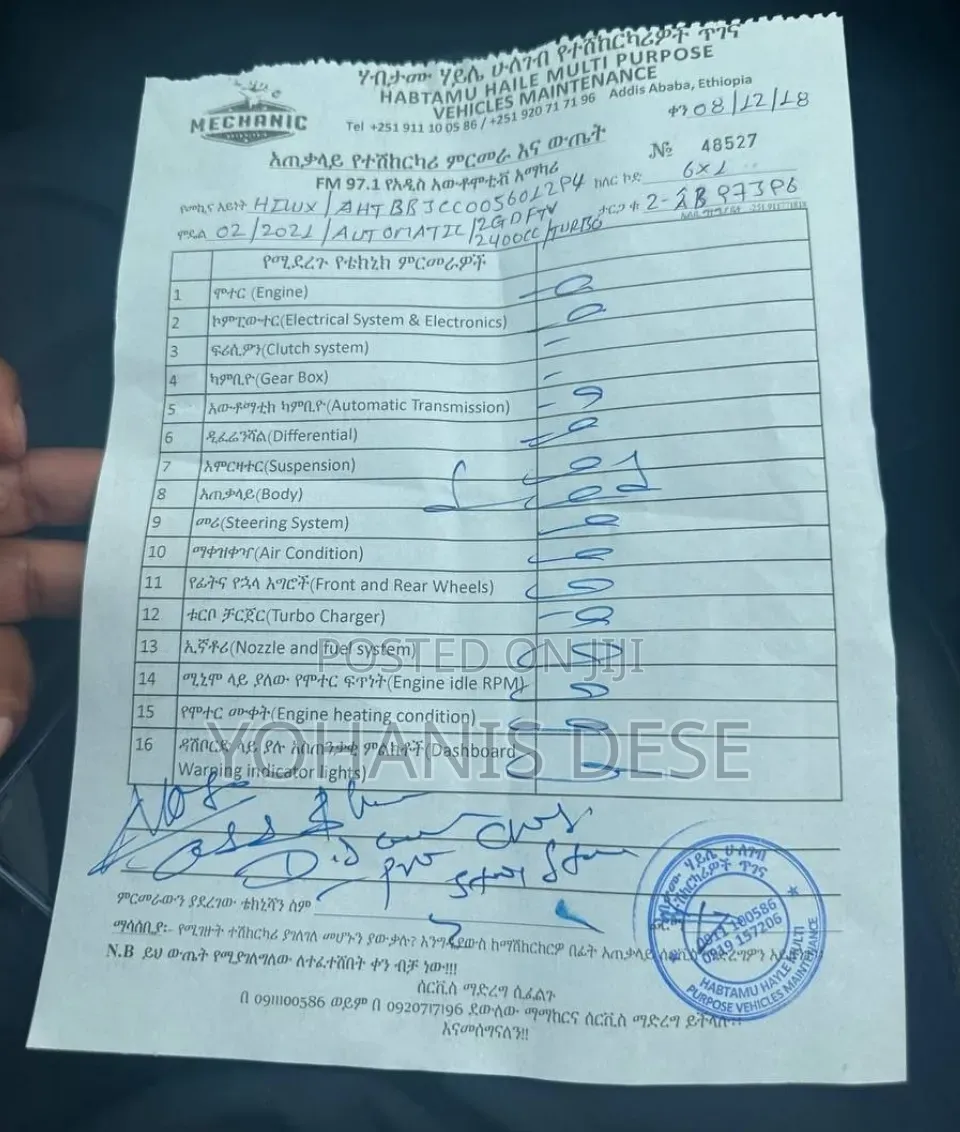 ሃብታሙ ሃይሌ ሁለገብ የተሽከርካሪዎች ጥገና
HABTAMU HAILE MULTI PURPOSE
VEHICLES MAINTENANCE
Tel +251 911 10 05 86 / +251 920 71 71 96 Addis Ababa, Ethiopia
MECHANIC
ቀን 08/12/18
አጠቃላይ የተሽከርካሪ ምርመራ እና ውጤት
№ 48527
FM 97.1 የአዲስ አውቶሞቲቭ አማካሪ
ከለር ኮድ 6X1
የመኪና አይነት HILUX / AHTBB3CC0056012P4
ታርጋ ቁ 2-
ሞዴል 02/2021/AUTOMATIC/2GDFTV
2400CC/TURBO
የሚደረጉ የቴክኒክ ምርመራዎች
1 ሞተር (Engine)
2 ኮምፒውተር(Electrical System & Electronics)
3 ፍሪሲዎን(Clutch system)
4 ካምቢዮ(Gear Box)
5 አውቶማቲክ ካምቢዮ(Automatic Transmission)
6 ዲፈሬንሻል(Differential)
7 አሞርዛተር(Suspension)
8 አጠቃላይ(Body)
9 መሪ(Steering System)
10 ማቀዝቀዣ(Air Condition)
11 የፊትና የኋላ እግሮች(Front and Rear Wheels)
12 ቱርቦ ቻርጀር(Turbo Charger)
13 ኢኛቶሪ(Nozzle and fuel system)
14 ሚኒሞ ላይ ያለው የሞተር ፍጥነት(Engine idle RPM)
15 የሞተር ሙቀት(Engine heating condition)
16 ዳሽቦርድ ላይ ያሉ አስጠንቃቂ ምልክቶች(Dashboard
Warning indicator lights)
POSTED ON JIJI
YOHANIS DESE
ምርመራውን ያደረገው ቴክኒሻን ስም
ማሳሰቢያ:- የሚገዙት ተሽከርካሪ ያገለገለ መሆኑን ያውቃሉ? እንግዲያውስ ከማሽከርከርዎ በፊት አጠቃላይ
N.B ይህ ውጤት የሚያገለግለው ለተፈተሸበት ቀን ብቻ ነው!!!
ሰርቪስ ማድረግ ሲፈልጉ
በ 0911100586 ወይም በ 0920717196 ደውለው ማማከርና ሰርቪስ ማድረግ ይችላሉ!!
እናመሰግናለን!!
ሃብታሙ ሃይሌ ሁለገብ
የተሽከርካሪዎች ጥገና
0911 100586
0919 157206
HABTAMU HAYLE MULTI
PURPOSE VEHICLES MAINTENANCE